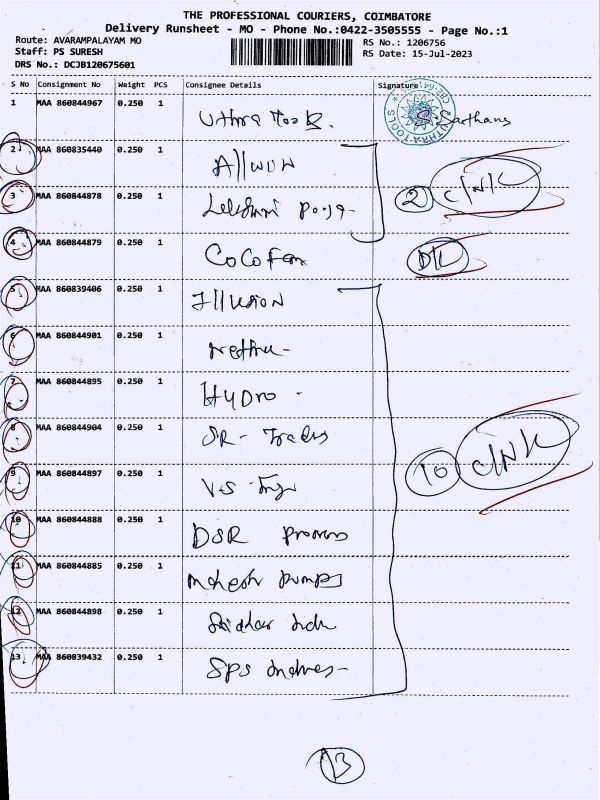 THE PROFESSIONAL COURIERS, COIMBATORE
Delivery Runsheet - MO - Phone No.:0422-3505555 - Page No.:1
Route: AVARAMPALAYAM MO
RS No.: 1206756
Staff: PS SURESH
RS Date: 15-Jul-2023
DRS No.: DCJB120675601
S No Consignment No Weight PCS Consignee Details Signature
1 MAA 860844967 0.250 1 Uthra Tools
2 MAA 860835440 0.250 1 Allwin
3 MAA 860844878 0.250 1 Lakshmi Pooja 2
4 MAA 860844879 0.250 1 CoCo
5 MAA 860839406 0.250 1 Illusion
6 MAA 860844901 0.250 1
7 MAA 860844895 0.250 1 Hydro
8 MAA 860844904 0.250 1 SR - Traders
9 MAA 860844897 0.250 1 VS 10
10 MAA 860844888 0.250 1 DSR Process
11 MAA 860844885 0.250 1 Mahesh Pumps
12 MAA 860844898 0.250 1
13 MAA 860839432 0.250 1 SPS
13